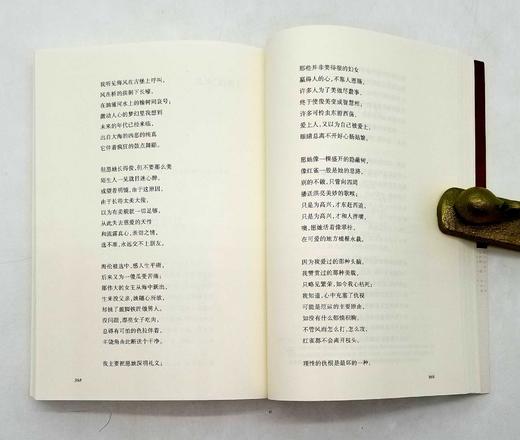 我听见海风在古堡上呼叫，
风在桥的拱洞下长嚎，
在涌道河水上的榆树间哀号；
激动人心的梦幻里我想到
未来的年代已经来临，
出自大海的凶恶的纯真
它伴着疯狂的鼓点舞蹈。
但愿她长得俊，但不要那么美
陌生人一见就目迷心醉，
或望着明镜，由于这原因，
由于长得太美太俊，
以为有美貌就一切足够，
从此失去慈爱的天性
和流露真心、亲切之情，
选不准，永远交不上朋友。
海伦被选中，感人生平淡，
后来又为一傻瓜受苦痛；
那伟大的女王从海中跃出，
生来没父亲，能随心所欲，
却挑了瘸脚铁匠做男人。
没问题，那些女子吃肉，
总得有可怕的色拉伴着，
丰饶角由此断送个干净。
我主要把愿她深明礼义；
368
那些并非美得很的妇女
赢得人的心，不靠人恩赐，
许多人为了美做尽蠢事，
终于使俊美变成智慧州；
许多可怜虫东游西荡，
爱上人，又以为自己被爱上，
眼睛总离不开好心肠姑娘。
愿她像一棵盛开的隐蔽树，
像红雀一般是她的思路，
别的不做，只管向四周
播送洪亮美妙的歌喉；
只是为高兴，才东赶西追，
只是为高兴，才和人拌嘴，
噢，愿她活着像翠桂，
在可爱的地方植根永栽。
因为我爱过的那种头脑，
我赞赏过的那种美貌，
只略见繁荣，如今我心枯死；
我知道，心中充塞了仇视
可能是厄运的主要原由，
如没有什么郁愤积胸，
不管风雨怎么打，怎么攻，
红雀都不会离开枝头。
理性的仇恨是最坏的一种，